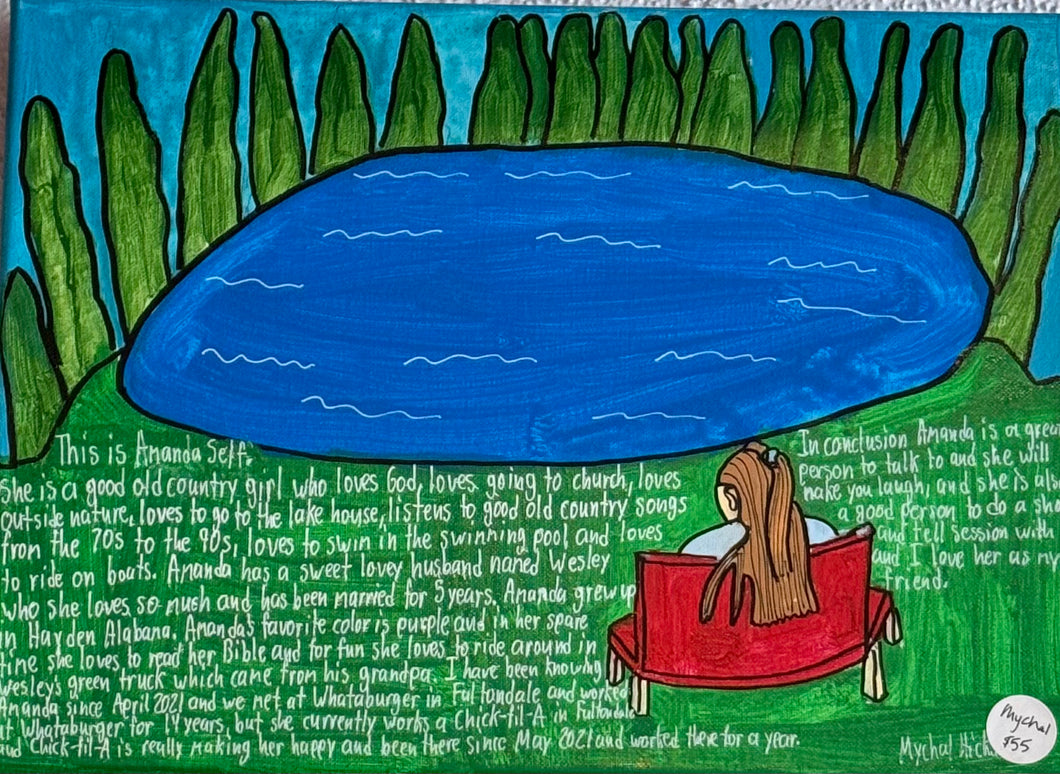 This is Amanda Self.
She is a good old country girl who loves God, loves going to church, loves
outside nature, loves to go to the lake house, listens to good old country songs
from the 70s to the 90s, loves to swim in the swimming pool and loves
to ride on boats. Amanda has a sweet lovey husband named Wesley
who she loves so much and has been married for 5 years. Amanda grew up
in Hayden Alabama. Amanda's favorite color is purple and in her spare
time she loves to read her Bible and for fun she loves to ride around in
Wesley's green truck which came from his grandpa. I have been knowing
Amanda since April 2021 and we met at Whataburger in Fultondale and worked
at Whataburger for 14 years, but she currently works a Chick-fil-A in Fultondale
and Chick-fil-A is really making her happy and been there since May 2021 and worked there for a year.
In conclusion Amanda is a great
person to talk to and she will
make you laugh, and she is also
a good person to do a show
and tell session with
and I love her as my
friend.
Mychal
Mychal
$55